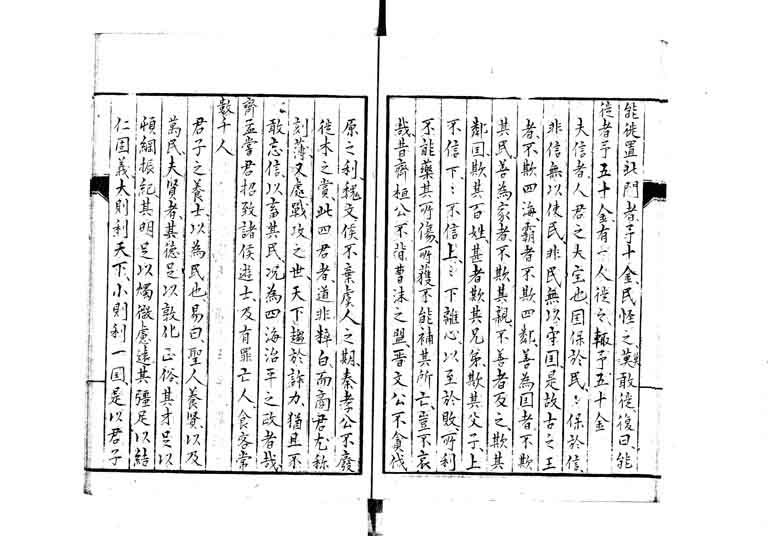 能徙置北門者予十金、民怪之、莫敢徙、復曰、能
徙者予五十金有一人徙之、輙予五十金
夫信者人君之大宝也国保於民〻保於信、
非信無以使民非民無以守国是故古之王
者不欺四海霸者不欺四鄰、善為国者不欺
其民善為家者不欺其親、不善者反之、欺其
鄰国欺其百姓、甚者欺其兄弟欺其父子、上
不信下〻不信上、〻下離心、以至於敗、所利
不能藥其所傷、所獲不能補其所亡、豈不哀
哉昔齊桓公不背曹沫之盟、晋文公不貪伐
原之利魏文侯不棄虞人之期、秦孝公不廢
徙木之賞、此四君者道非粹白、而商君尤称
刻薄、又處戰攻之世天下趨於詐力、猶且不
敢忘信、以畜其民、况為四海治平之政者哉、
齊孟嘗君招致諸侯遊士、及有罪亡人、食客常
數千人
君子之養士以為民也、易曰、聖人養賢、以及
萬民、夫賢者其徳足以敦化正俗、其才足以
頓綱振紀其明足以燭微慮遠其彊足以結
仁固義大則利天下、小則利一国、是以君子